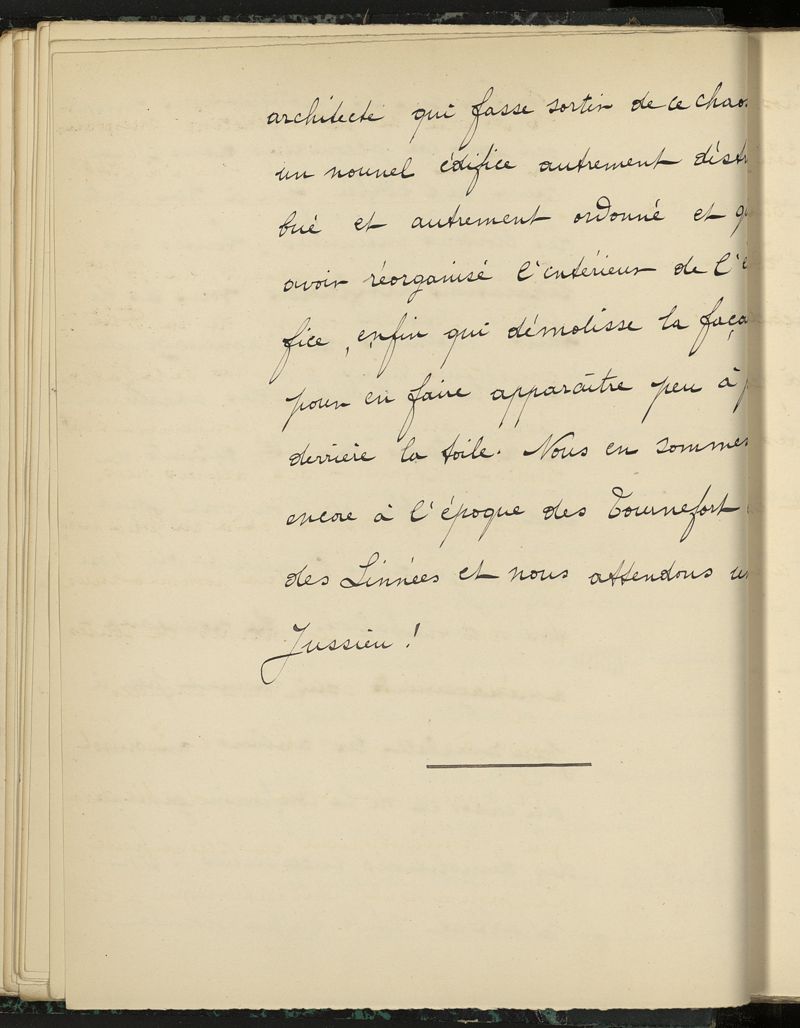 architecte qui fasse sortir de ce chaos
un nouvel édifice autrement distri
bué et autrement ordonné et
avoir réorganisé l'intérieur de l'é
fice, enfin qui démolisse la faça
pour en faire apparaître peu à p
derrière la toile. Nous en sommes
encore à l'époque des Tournefort
des Linnées et nous attendons un
Jussieu !